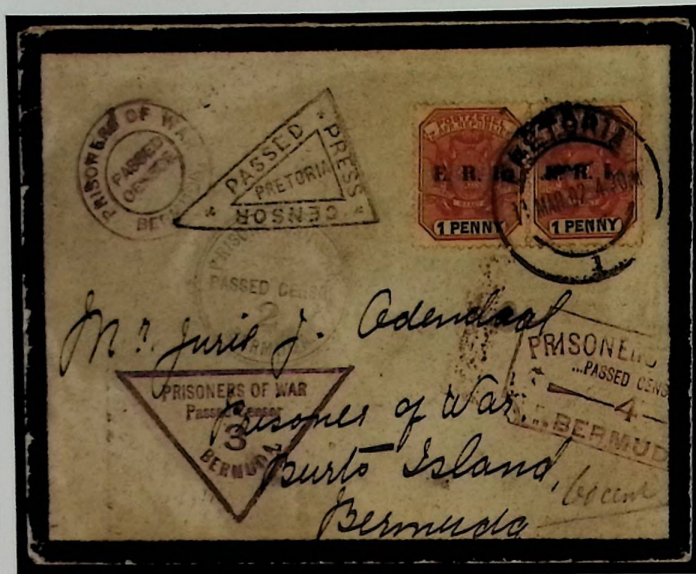 PRISONERS OF WAR
PASSED
CENSOR
BERMUDA
PASSED
PRESS
CENSOR
PRETORIA
POSTZEGEL
E. R. I.
1 PENNY
R. I.
1 PENNY
PRETORIA
MAR 02 4.30
1
PASSED CENSOR
2
Mr. Jurie J. Odendaal
PRISONERS
PASSED CENS
4
BERMUD
PRISONERS OF WAR
Passed Censor
3
BERMUDA
Prisoner of War
Burts Island,
Bermuda